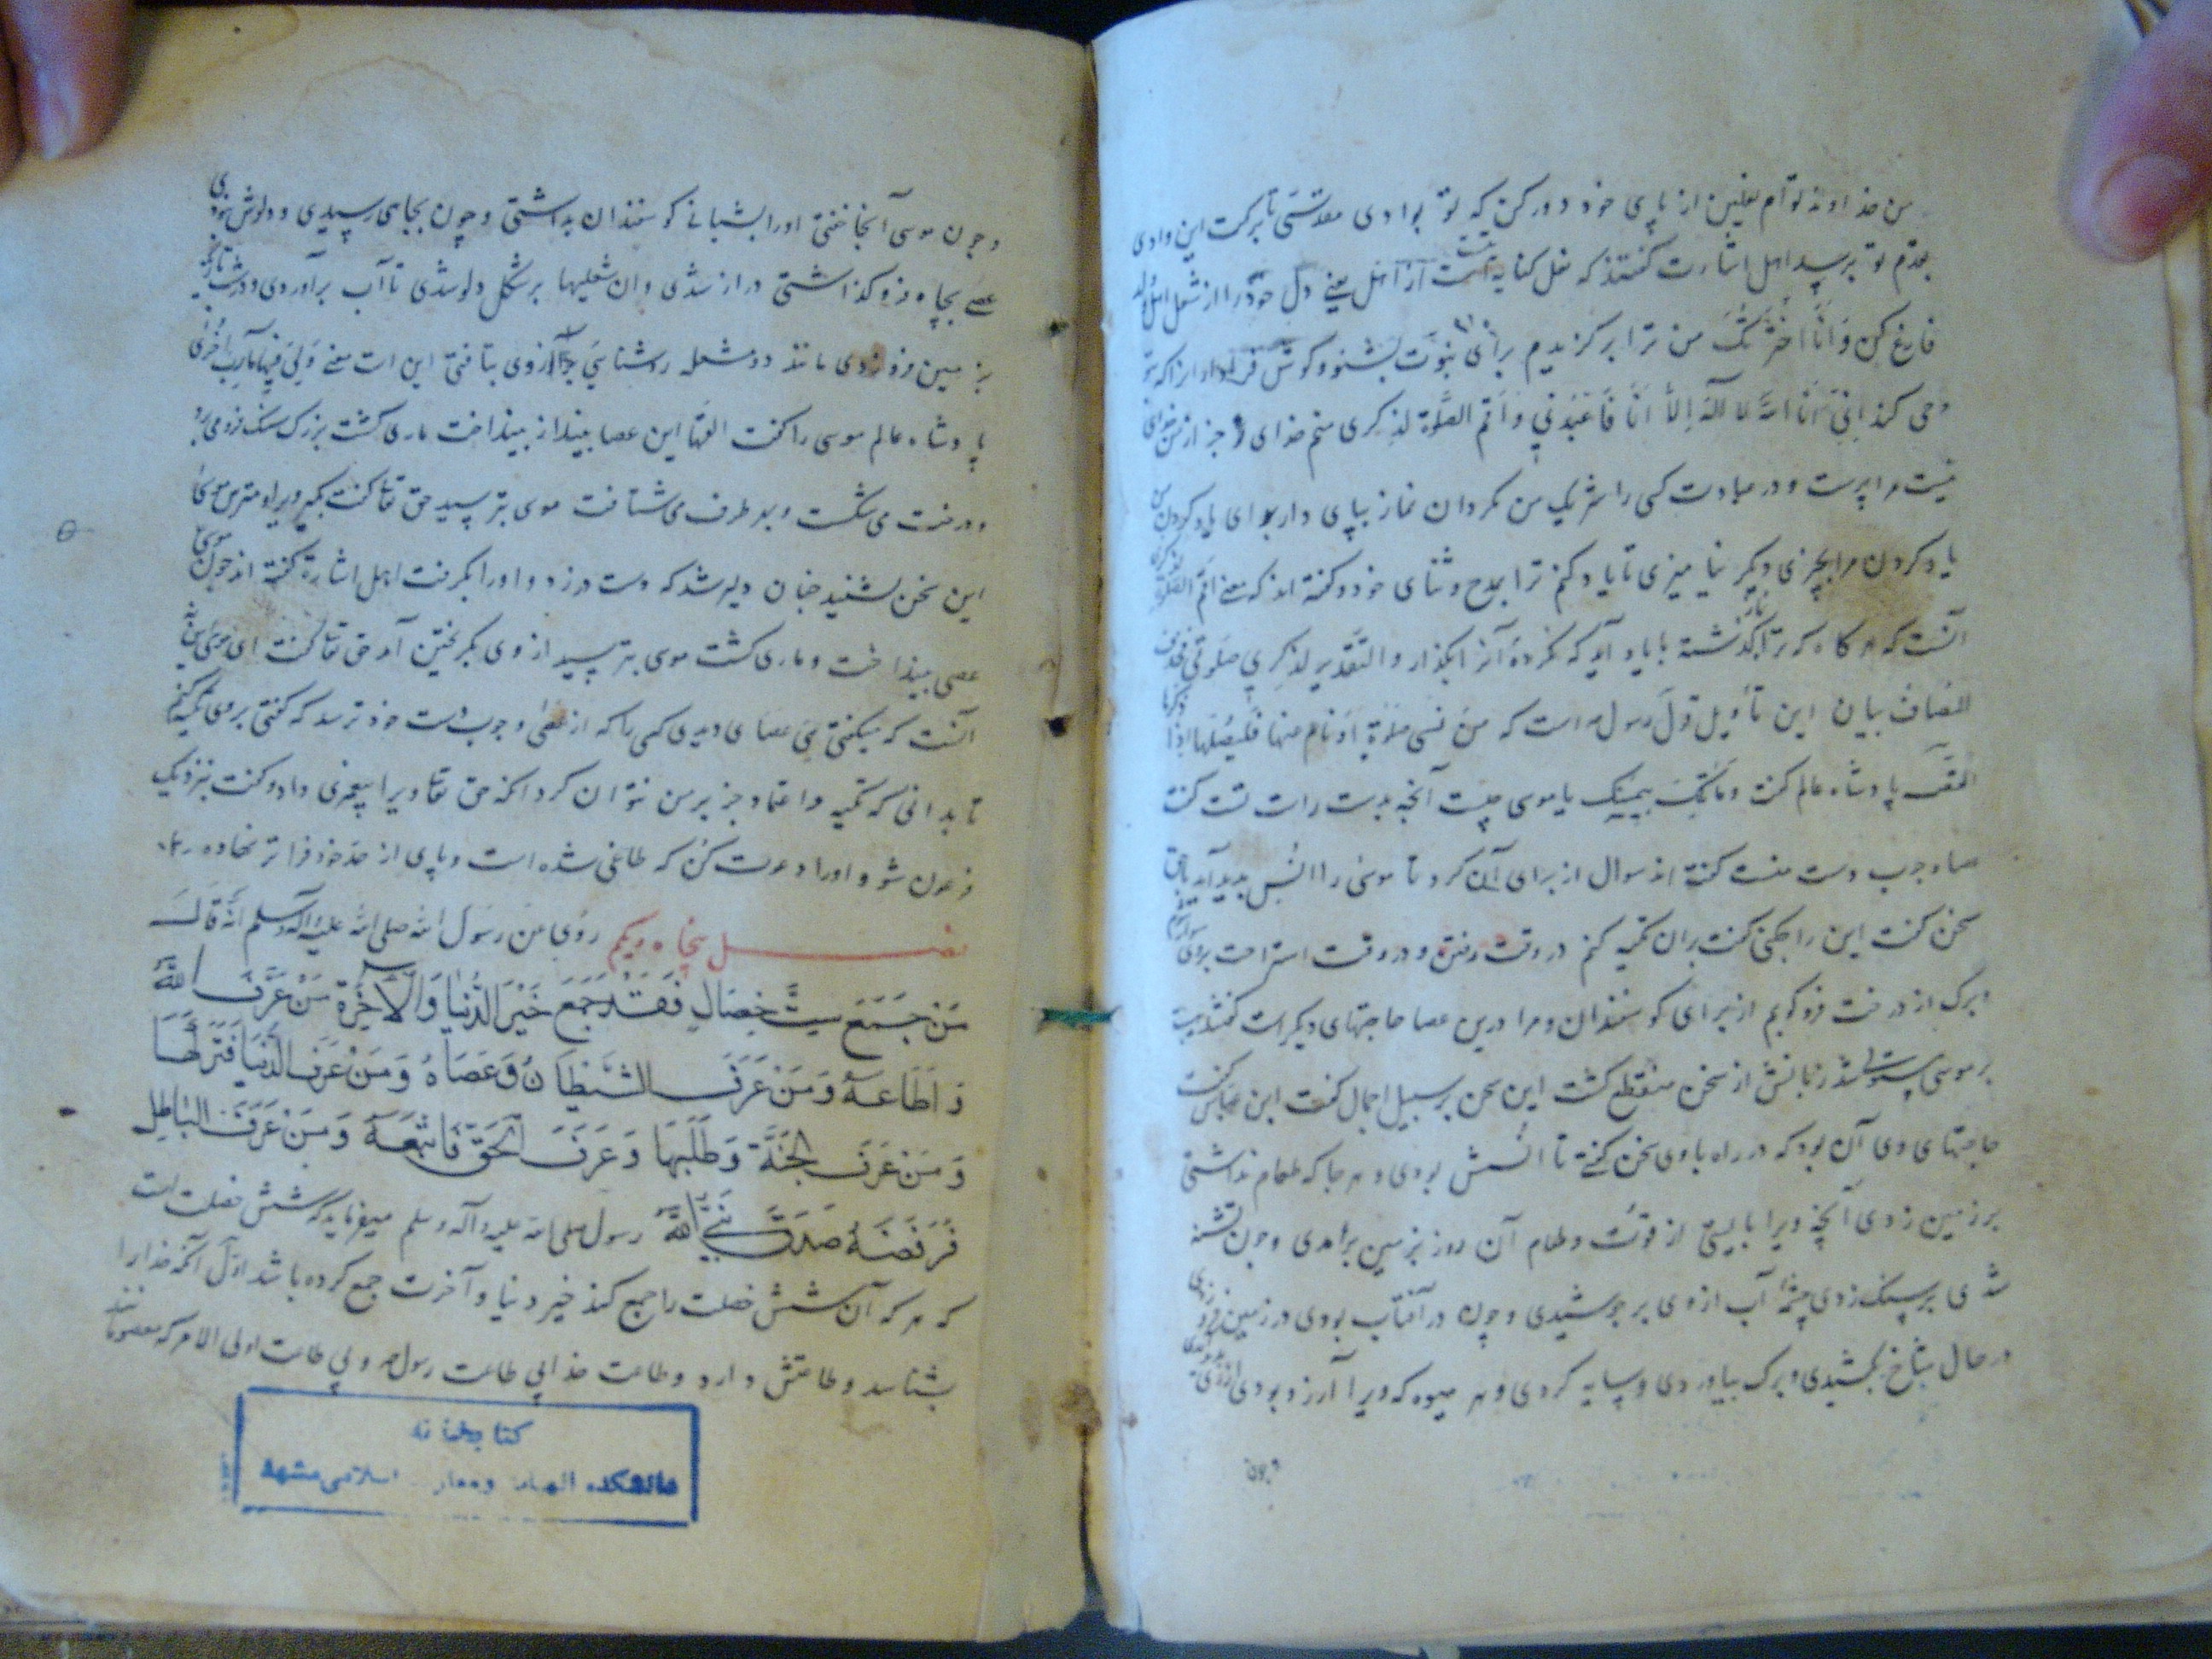 من خداوند توام نعلین از پای خود دور کن که تو بوادی مقدستی تا برکت این وادی
بقدم تو برسد اهل اشارت گفتند که نعل کنایت است از اهل یعنی دل خود را از شغل اهل و ولد
فارغ کن وَاَنَا اخْتَرْتُکَ من ترا برگزیدم برای نبوت بشنو و گوش فرا دار انرا که بتو
وحی کنند اِنَّنی اَنَا اللّه لا اِلٰهَ اِلاّ اَنَا فَاعْبُدْنی وَاَقِم الصَّلوةَ لِذِکری منم خدای و جز از من خدای
نیست مرا پرست و در عبادت کسی را شریک من مگردان نماز بپای دار برای یاد کردن من
یاد کردن مرا بچیزی دیگر نیامیزی تا یاد کنم ترا بمدح و ثنای خود و گفته اند که معنی اقم الصلوة لذکری
آنست که هر گاه که بر تو نماز گذشته بایاد آید که نکرده آنرا بگذار والتقدیر لذکری صلوتی فحذف
المضاف بیان این تأویل قول رسول است که من نسی صلوة اونام عنها فلیصلها اذا ذکرها
القصه پادشاه عالم گفت وَمَاتِلْکَ بِیَمینِکَ یا موسی چیست آنچه بدست راست تست گفت
عصا و جوب دست منست گفته اند سوال از برای آن کرد تا موسی را انس پدید آید با حق
سخن گفت این را چکنی گفت بران تکیه کنم در وقت رفتن و در وقت استراحت بروی
وبرک از درخت فرو کوبم از برای گوسفندان و مرا درین عصا حاجتهای دیگر است گفتند هیبت
بر موسی مستولی شد زبانش از سخن منقطع گشت این سخن بر سبیل اجمال گفت ابن عباس گفت
حاجتهای وی آن بود که در راه باوی سخن گفتی تا انسش بودی و هر جا که طعام نداشتی
بر زمین زدی آنچه ویرا بایستی از قوت و طعام آن روز بزمین برآمدی و چون تشنه
شدی بر سنک زدی چشمۀ آب ازوی بر جوشیدی و چون در آفتاب بودی در زمین فرو زدی
در حال شاخ بکشیدی و برک بیاوردی و سایه کردی و هر میوه که ویرا آرزو بودی ازوی
و چون
و چون موسی آنجا خفتی اورا بشبانی گوسفندان بداشتی و چون بچاهی رسیدی و دلوش نبودی
عصی بچاه فرو گذاشتی دراز شدی وان شعبیها بر شکل دلو شدی تا آب برآوردی و در شب تاریک
بر زمین فرو زدی مانند دو مشعله روشنایی ازوی بتافتی این است معنی وَلِیَ فیهٰا مَآرِبُ اُخریٰ
پادشاه عالم موسی را گفت القها این عصا بینداز بینداخت ماری گشت بزرک سنک فرو می برد
و درخت می شکست و بهر طرف می شتافت موسی بترسید حق تعا گفت بگیر ویرا و مترس موسی
این سخن بشنید چنان دلیر شد که دست در زد و اورا بگرفت اهل اشارة گفته اند چون موسی
عصی بینداخت و ماری گشت موسی بترسید از وی بگریختن آمد حق تعا گفت ای موسی این
آنست که میگفتی هی عصای دیدی کسی را که از عصی و جوب دست خود ترسد که گفتی بروی تکیه کنم
تا بدانی که تکیه و اعتماد جز بر من نتوان کرد آنکه حق تعا ویرا پیغمبری داد و گفت بنزدیک
فرعون شو و اورا دعوت کن که طاغی شده است و پای از حد خود فراتر نهاده
فصل پنجاه و یکم رُوِیَ مِن رَسُولِ اللّه صلی اللّه علیه وآله وسلم اَنّهُ قَالَ
مَنْ جَمَعَ سِتَّ خِصَالٍ فَقَدْ جَمَعَ خَیْرَ الدُّنیَا وَالْآخِرَةِ مَنْ عَرَفَ اللّٰهَ
وَ اَطَاعَهُ وَمَنْ عَرَفَ الشَّیْطَانَ وَعَصَاهُ وَمَنْ عَرَفَ الدُّنیَا فَتَرَکَهَا
وَمَنْ عَرَفَ الْجَنَّةَ وَطَلَبَهَا وَعَرَفَ الْحَقَّ فَاتَّبَعَهُ وَمَنْ عَرَفَ البَاطِلَ
فَرَفَضَهُ صَدَقَ نَبِیُّ اللّٰهِ رسول صلی اللّه علیه وآله وسلم میفرماید که شش خصلت است
که هر که آن شش خصلت را جمع کند خیر دنیا و آخرت جمع کرده باشد اوّل آنکه خدا را
بشناسد و طاعتش دارد و طاعت خدا بی طاعت رسول و بی طاعت اولی الامر که معصومانند
کتابخانه
دانشکده الهیات ومعارف اسلامی مشهد